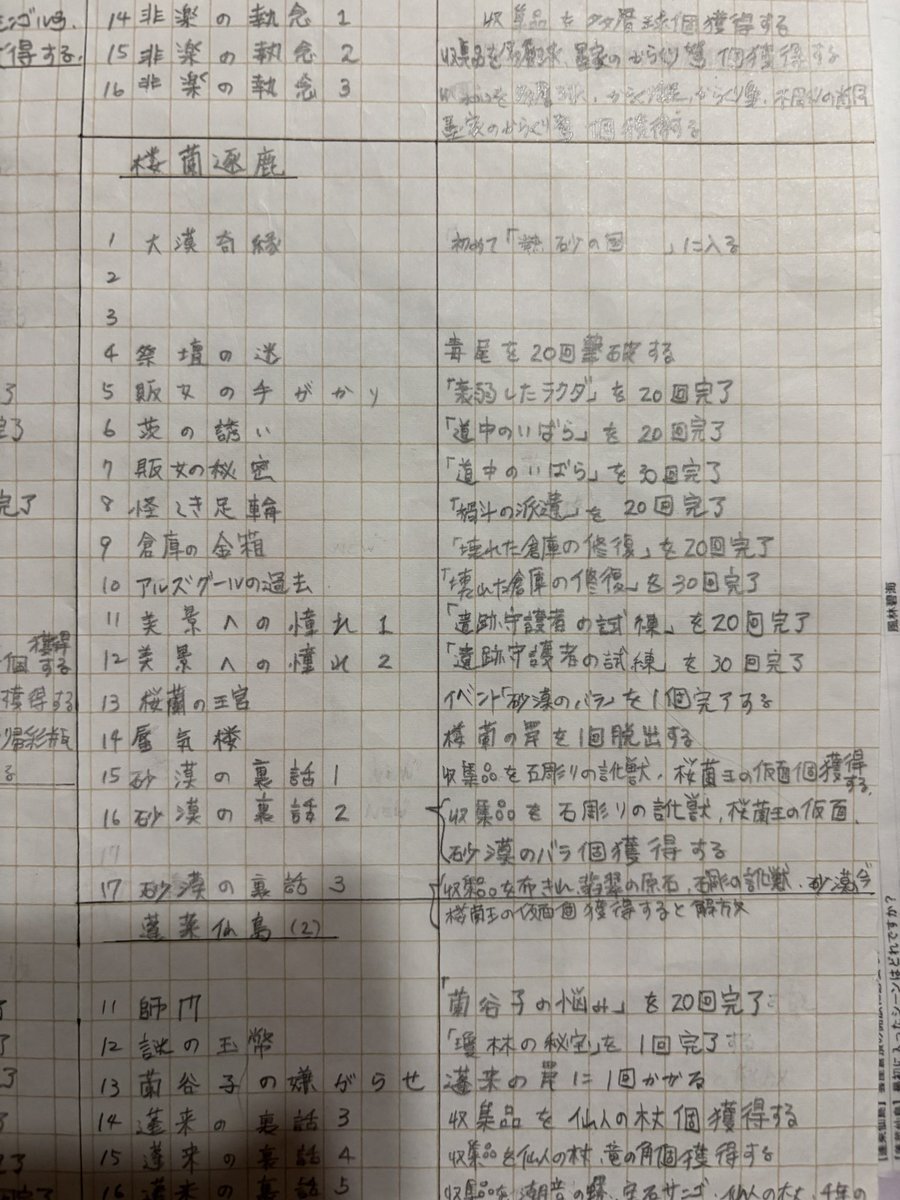 ンゴル弓
得する。
14 非楽の執念 1 収集品を 個獲得する
15 非楽の執念 2 収集品を 墨家のからくり鳶 個獲得する
16 非楽の執念 3
墨家のからくり鳶 個獲得する
楼蘭逐鹿
1 大漠奇縁 初めて「熱砂の国 」に入る
2
3
4 祭壇の迷 毒尾を20回撃破する
5 販女の手がかり 「衰弱したラクダ」を20回完了
6 茨の誘い 「道中のいばら」を20回完了
7 販女の秘密 「道中のいばら」を30回完了
8 怪しき足輪 の派遣」を 20回完了
9 倉庫の金箱 「壊れた倉庫の修復」を20回完了
10 アルズグールの過去 「壊れた倉庫の修復」を30回完了
11 美景への憧れ 1 「遺跡守護者の試練」を20回完了
12 美景への憧れ 2 「遺跡守護者の試練」を30回完了
13 桜蘭の王宮 イベント「砂漠のバラ」を1個完了する
14 蜃気楼 桜蘭の岸を1回脱出する
15 砂漠の裏話 1 収集品を石彫りの訛獣、桜蘭王の仮面個獲得する。
16 砂漠の裏話 2 収集品を石彫りの訛獣、桜蘭王の仮面、
砂漠のバラ個獲得する
17
17 砂漠の裏話 3 収集品を布きれ、翡翠の原石、石彫の訛獣、砂漠
桜蘭王の仮面個獲得すると解放
蓬莱仙島(2)
11 師門 「蘭谷子の悩み」を20回完了
12 謎の玉幣 「瓊林の秘宝」を1回完了
13 蘭谷子の嫌がらせ 蓬来の岸に1回かかる
14 蓬来の裏話 3 収集品を仙人の杖個獲得する
15 蓬来の裏話 4 収集品を仙人の杖、竜の角個獲得する
16 蓬来の裏話 5 収集品を潮音の 、宝石サンゴ、仙人の杖、
完了
獲得する
個
獲得する
風林碧海
入ったシーンはどれですか?